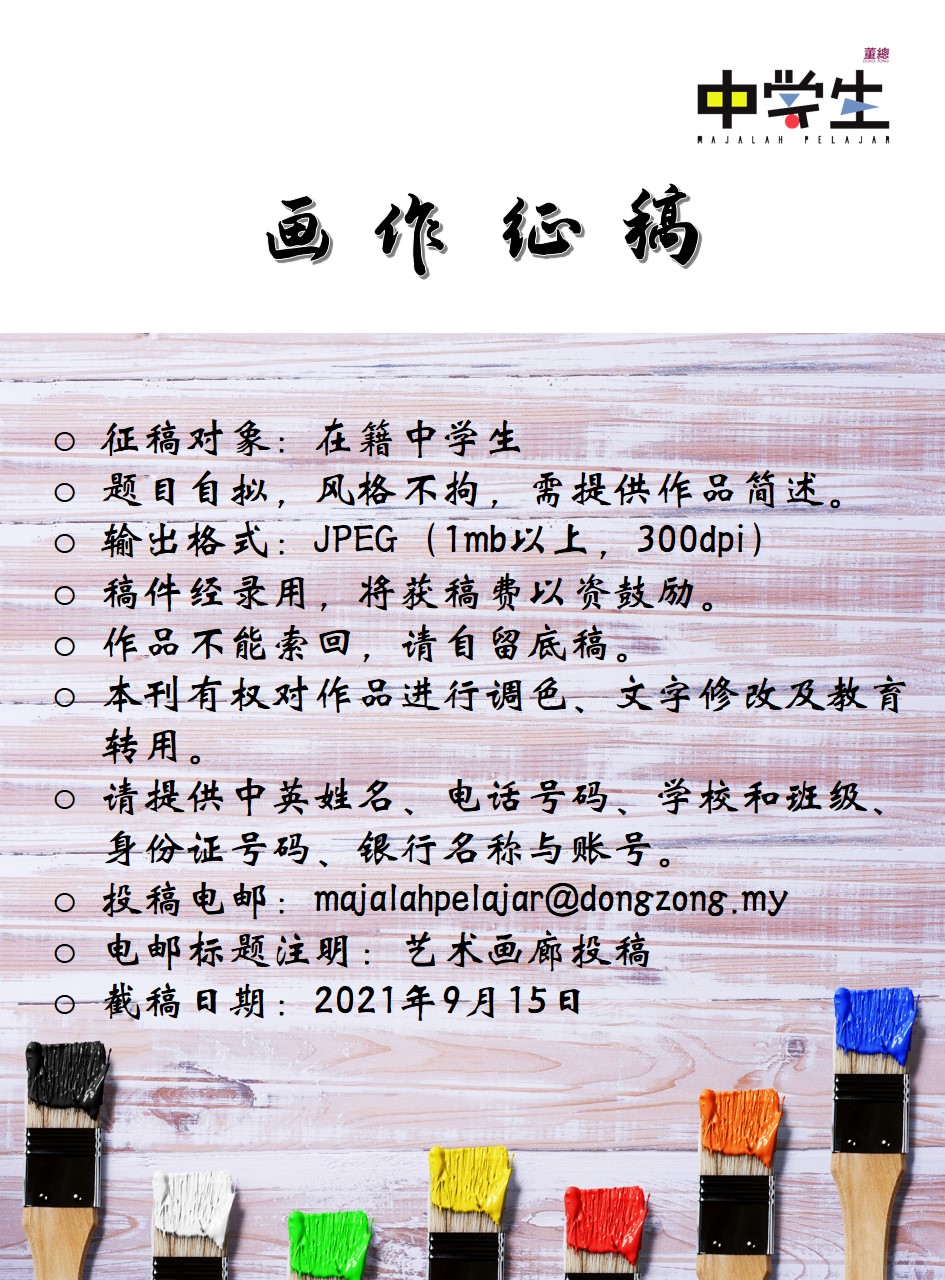 董總
DONG ZONG
中学生
MAJALAH PELAJAR
画作征稿
○ 征稿对象：在籍中学生
○ 题目自拟，风格不拘，需提供作品简述。
○ 输出格式：JPEG（1mb以上，300dpi）
○ 稿件经录用，将获稿费以资鼓励。
○ 作品不能索回，请自留底稿。
○ 本刊有权对作品进行调色、文字修改及教育
转用。
○ 请提供中英姓名、电话号码、学校和班级、
身份证号码、银行名称与账号。
○ 投稿电邮：majalahpelajar@dongzong.my
○ 电邮标题注明：艺术画廊投稿
○ 截稿日期：2021年9月15日